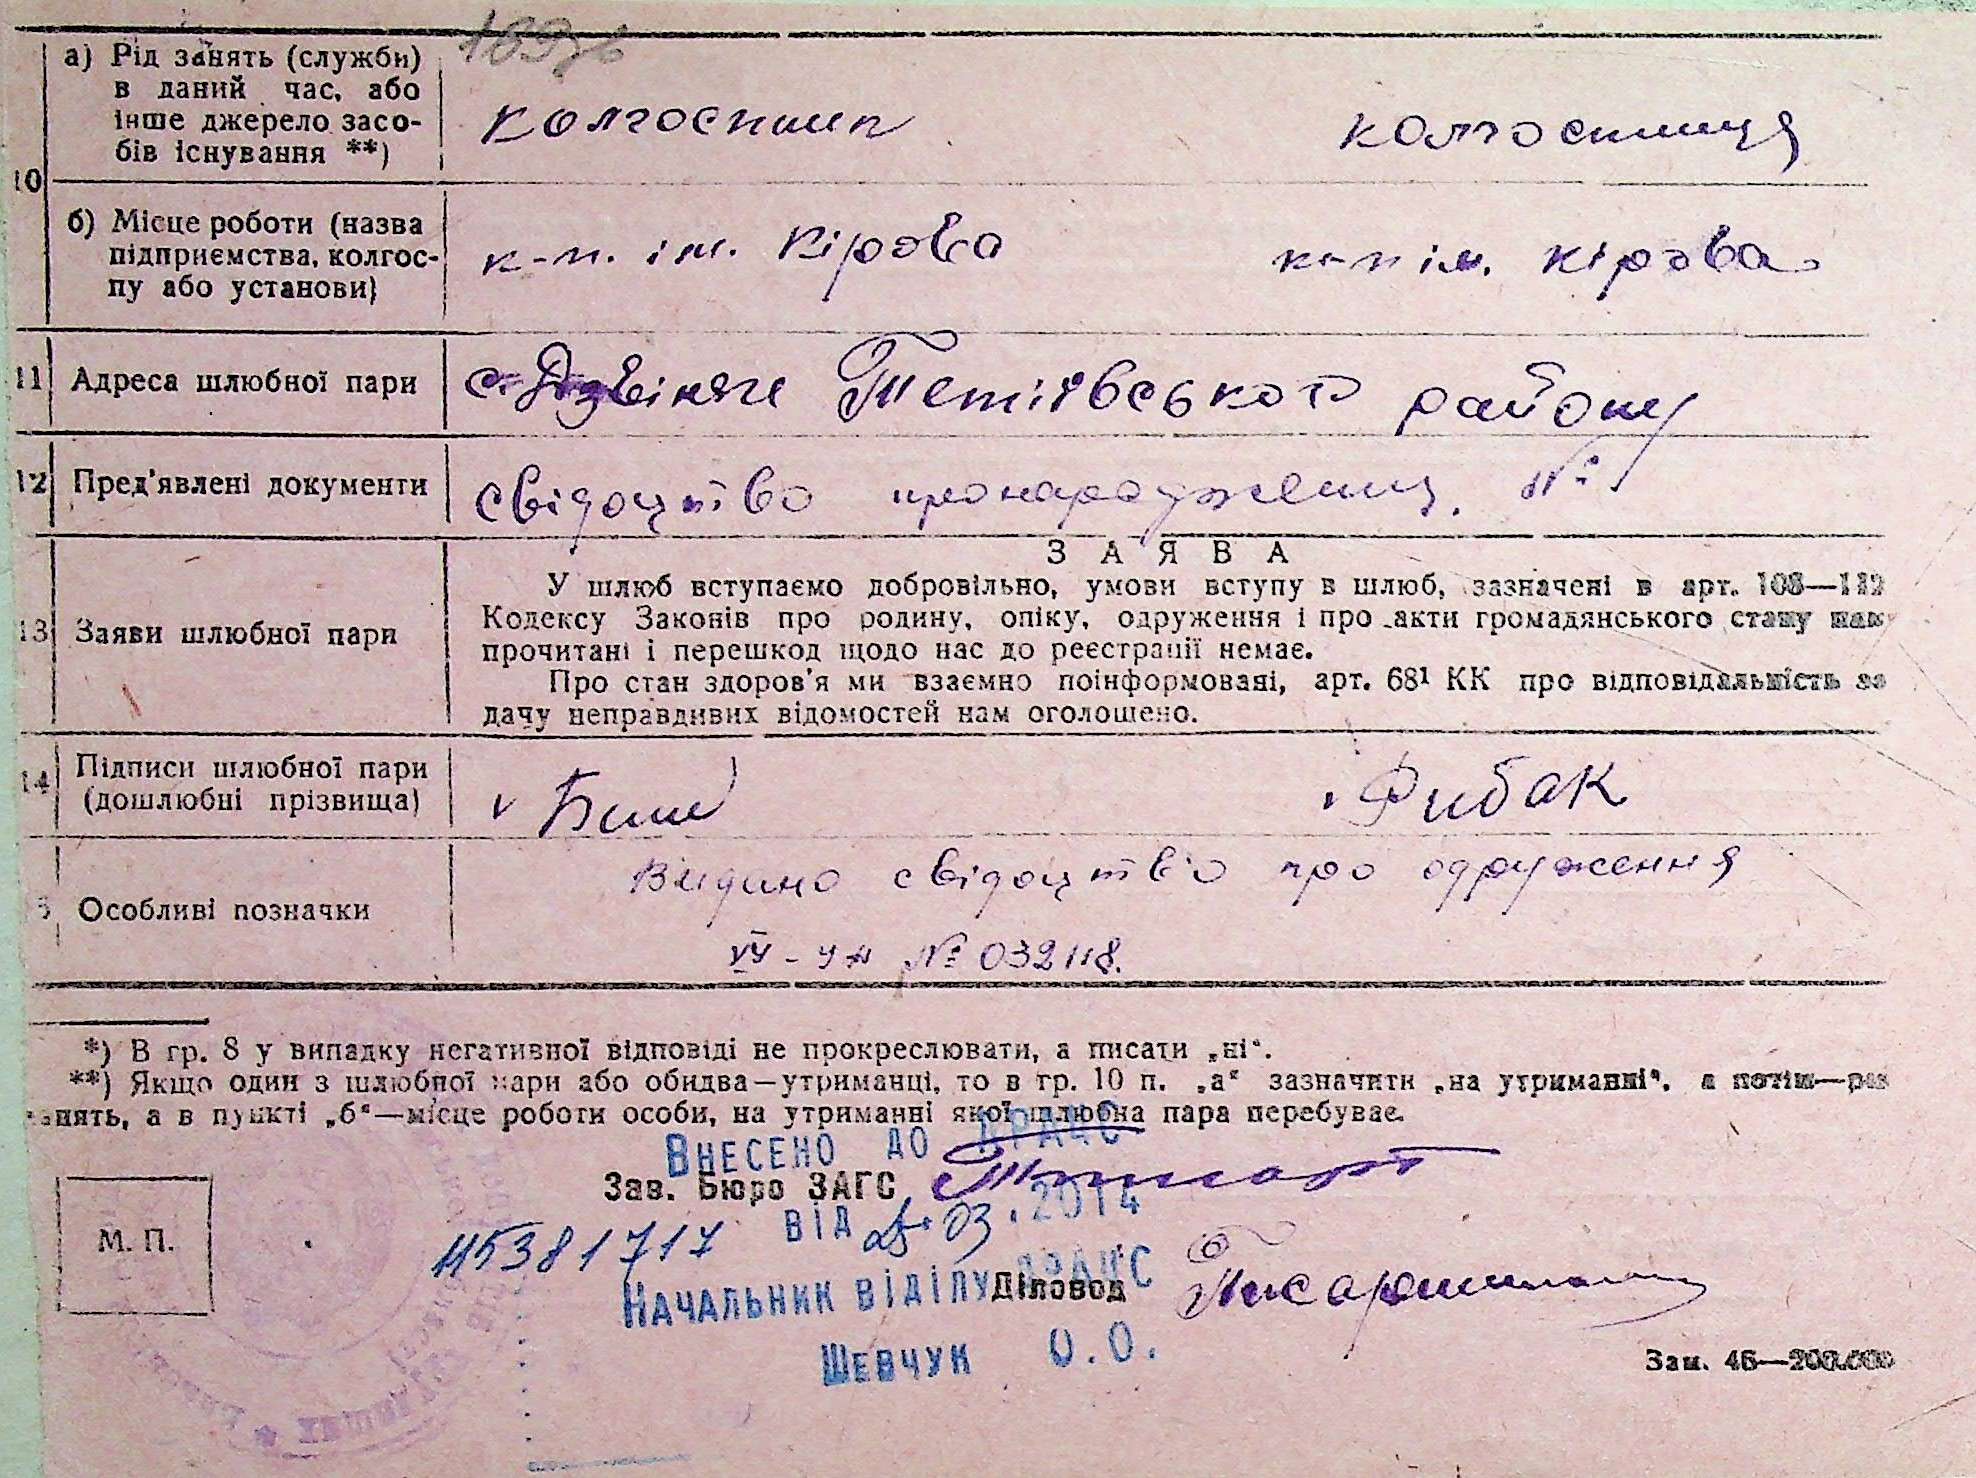 10
а) Рід занять (служби)
в даний час, або
інше джерело засо-
бів існування **)
колгоспник колгоспниця
б) Місце роботи (назва
підприємства, колгос-
пу або установи)
к-п. ім. Кірова к-п ім. Кірова
11 Адреса шлюбної пари
с. Дзвіняче Тетіївського району
12 Пред'явлені документи
свідоцтво про народження. №
13 Заяви шлюбної пари
ЗАЯВА
У шлюб вступаємо добровільно, умови вступу в шлюб, зазначені в арт. 108—112
Кодексу Законів про родину, опіку, одруження і про акти громадянського стану нам
прочитані і перешкод щодо нас до реєстрації немає.
Про стан здоров'я ми взаємно поінформовані, арт. 68¹ КК про відповідальність за
дачу неправдивих відомостей нам оголошено.
14 Підписи шлюбної пари
(дошлюбні прізвища)
Рибак
5 Особливі позначки
Видано свідоцтво про одруження
№ 032118.
*) В гр. 8 у випадку негативної відповіді не прокреслювати, а писати „ні“.
**) Якщо один з шлюбної пари або обидва—утриманці, то в гр. 10 п. „а“ зазначити „на утриманні“, а потім—рід
занять, а в пункті „б“—місце роботи особи, на утриманні якої шлюбна пара перебуває.
Внесено до ДРАЦС
Зав. Бюро ЗАГС
115381717 від 03.2014
М. П.
Начальник відділу ДРАЦС
Діловод
Шевчук О.О.
Зам. 46—200.000